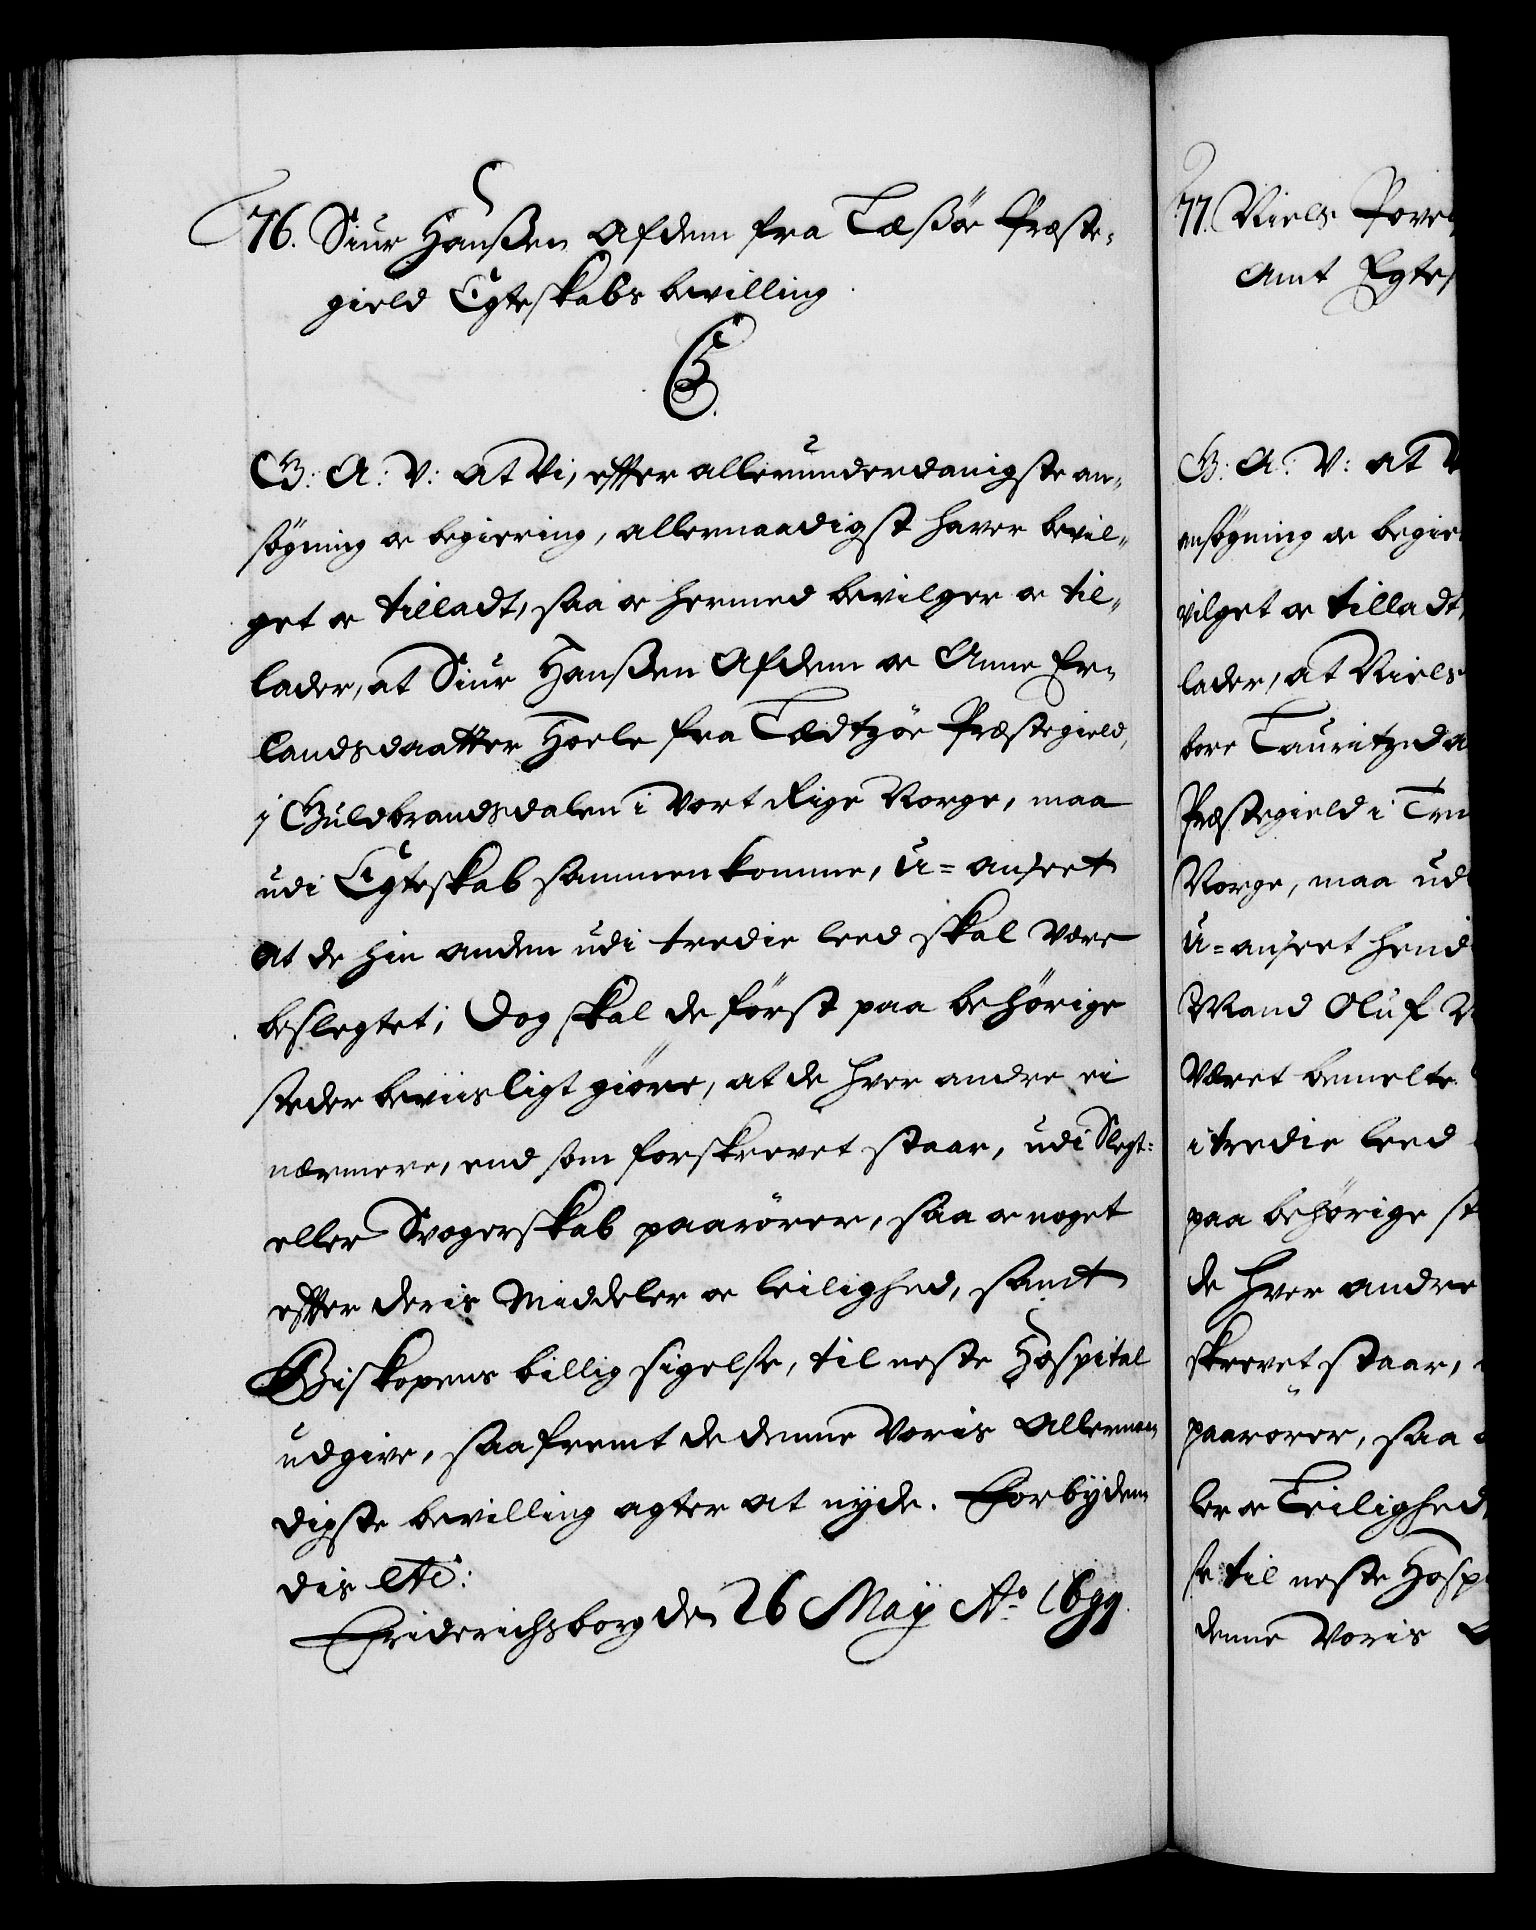 76. Siur Hanßen Afdem fra Læßöe Præste-
gield Egteskabs bevilling.
C5.
G: A: V: at Vi, effter allerunderdanigste an-
søgning oc begiering, allernaadigst hafver bevil-
get oc tilladt, saa oc hermed bevilger oc til-
lader, at Siur Hanßen Afdem oc Anne Er-
landsdaatter Hoele fra Lædtzöe Præstegield,
j Guldbrandsdalen i Vort Rige Norge, maa
udi Egteskab sammenkomme, u=anseet
at de hin anden udi tredie leed skal være
beslegtet; Dog skal de först paa behörige
steder beviisligt giöre, at de hver andre ei
nærmere, end som forskrevet staar, udi Slegt-
eller Svogerskab paarörer, saa oc noget
effter deris Middeler oc leilighed, samt
Biskopens billig sigelse, til neste Hospital
udgive, saafremt de denne Voris Allernaa-
digste bevilling agter at nyde. Forbyden-
dis etc:
Friderichsborg den 26 Maij Ao 1699.
77. Niels Povel
Amt Egtes
G: A: V: at V
ansögning oc begier
vilget oc tilladt,
lader, at Niels
bore Lauritzda
Præstegield i Trn
Norge, maa ud
u=anseet hend
Mand Oluf N
Været bemelte
i tredie leed
paa behörige st
de hver andre
skrevet staar,
paarörer, saa
ler oc Leilighed,
se til neste Hosp
denne Voris